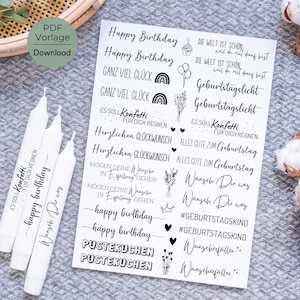 PDF
Vorlage
Download
Happy Birthday
Happy Birthday
GANZ VIEL GLÜCK
GANZ VIEL GLÜCK
ES SOLL Konfetti
FÜR DICH REGNEN
Herzlichen GLÜCKWUNSCH
Herzlichen GLÜCKWUNSCH
MÖGEN DEINE Wünsche
in Erfüllung GEHEN
MÖGEN DEINE Wünsche
in Erfüllung GEHEN
happy birthday
happy birthday
PUSTEKUCHEN
PUSTEKUCHEN
DIE WELT IST SCHÖN,
weil du mit drauf bist
DIE WELT IST SCHÖN,
weil du mit drauf bist
Geburtstagslicht
Geburtstagslicht
ES SOLL Konfetti
FÜR DICH REGNEN
ALLES GUTE ZUM Geburtstag
ALLES GUTE ZUM Geburtstag
Wünsch Dir was
Wünsch Dir was
#GEBURTSTAGSKIND
#GEBURTSTAGSKIND
Wunscherfüller
Wunscherfüller
ES SOLL Konfetti
FÜR DICH REGNEN
happy birthday
Wünsch Dir was